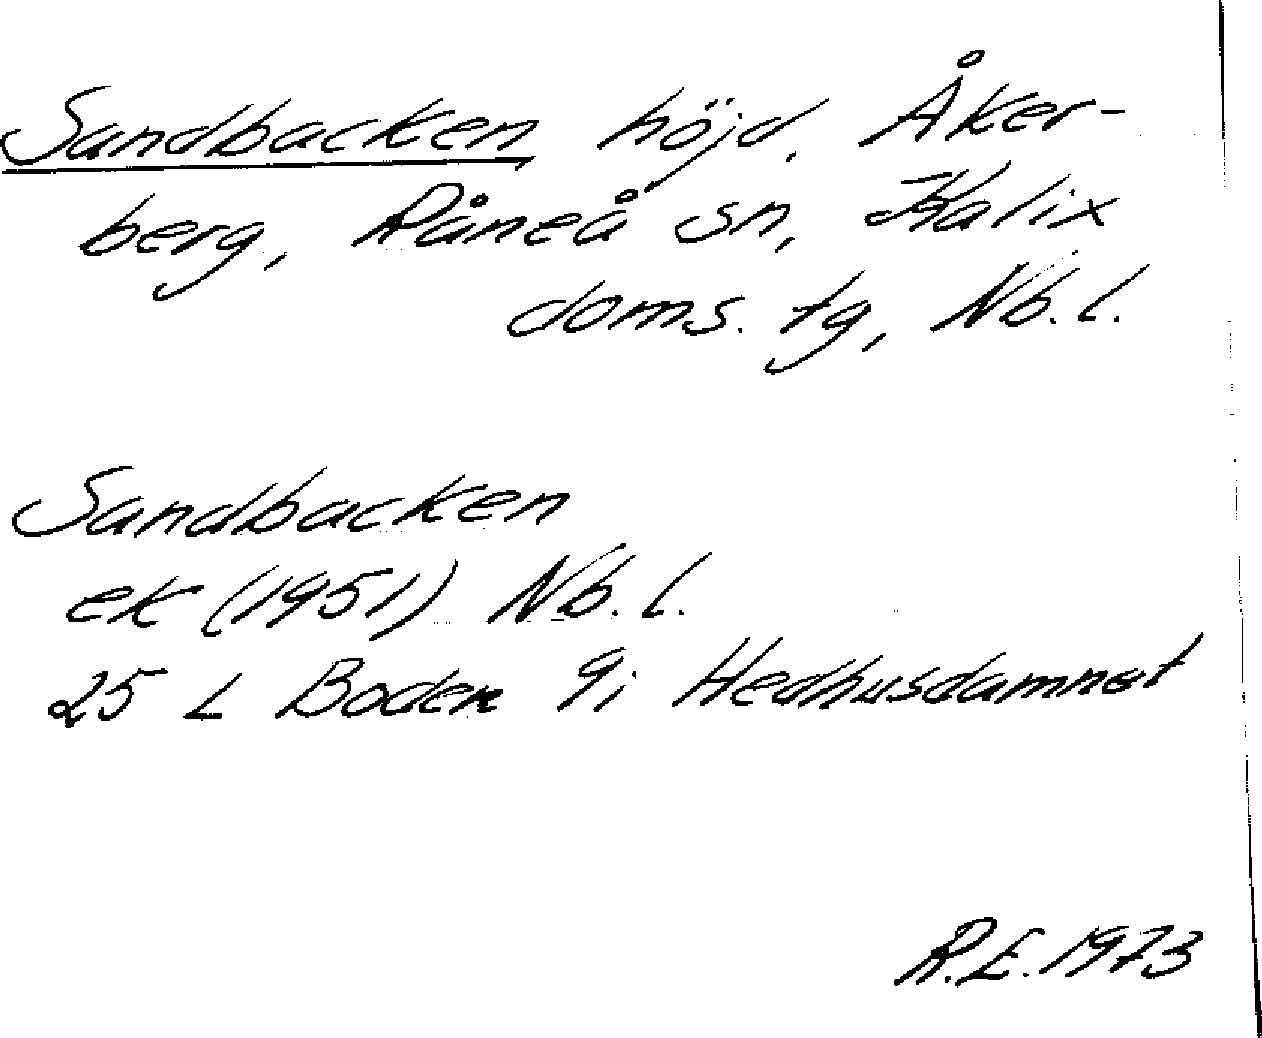 Sandbacken, höjd, Åker-
berg, Råneå sn, Kalix
doms. tg, Nb. l.
Sandbacken
ek (1951) Nb. l.
25 L Boden 9i Hedhusdamnet
R.E. 1973